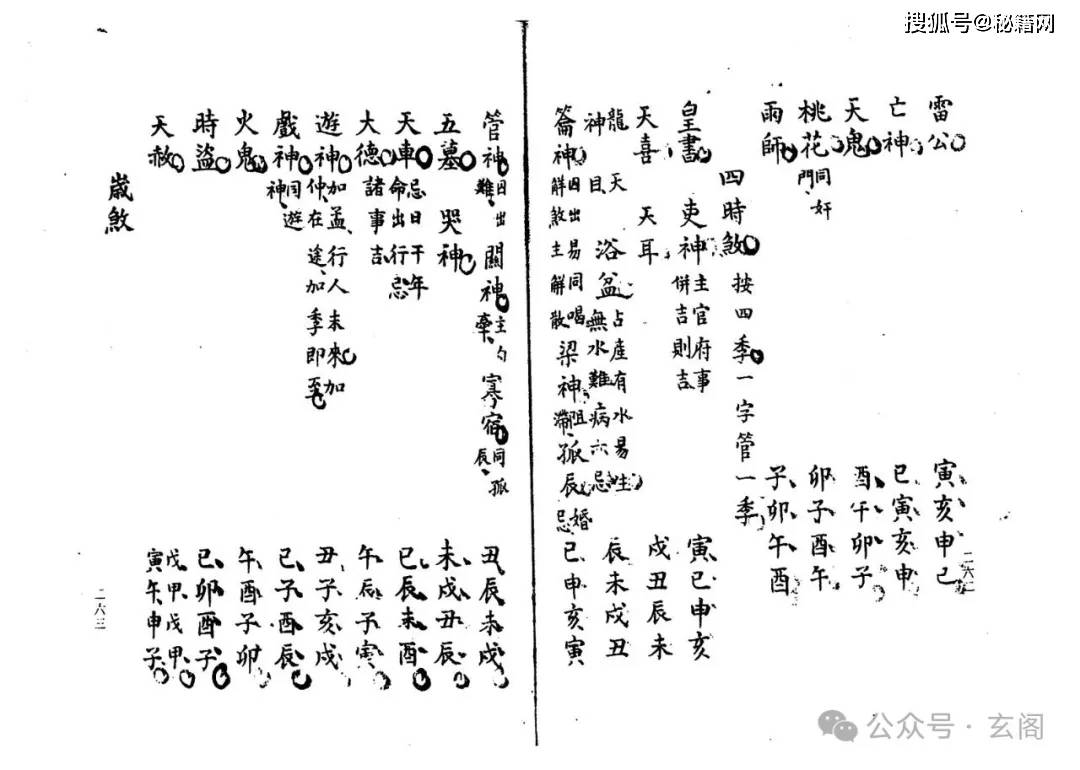 搜狐号@秘籍网
雷公 寅亥申巳
亡神 巳寅亥申
天鬼 酉午卯子
桃花 同奸門 卯子酉午
雨師 子卯午酉
四時煞 按四季一字管一季
皇書 吏神 主官府事併吉則吉 寅巳申亥
天喜 天耳 戌丑辰未
龍神 天目 浴盆 占産有水易生無水難病六忌 辰未戌丑
籥神 因出易同唱解煞主解散 梁神 阻滯 孤辰 忌婚 巳申亥寅
二六二
管神 因出難 關神 主勾牽 寡宿 同孤辰 丑辰未戌
五墓 哭神 未戌丑辰
天車 忌日干年命出行忌 巳辰未酉
大德 諸事吉 午辰子寅
遊神 加孟行人未來加仲在途加季即至 丑子亥戌
戲神 同遊神 巳子酉辰
火鬼 午酉子卯
時盜 巳卯酉子
天赦 戊寅甲午戊申甲子
歲煞
二六三
公众号·玄阁